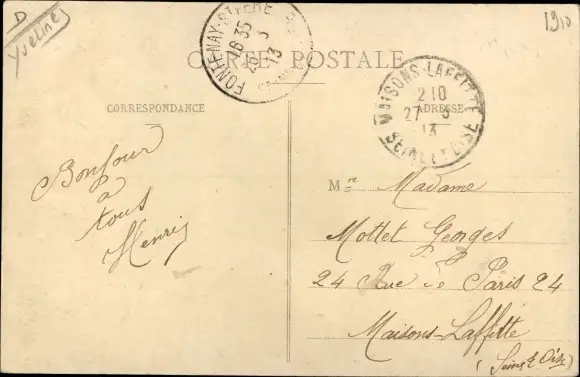 D
Yvelines
1910
CARTE POSTALE
FONTENAY-S
18 35
26 3
13
MAISONS-LAFFITTE
2 10
27 3
13
SEINE ET OISE
CORRESPONDANCE
ADRESSE
Bonjour
à
tous
Henri
M
Madame
Mottet Georges
24 Rue de Paris 24
Maisons-Laffitte
(Seine & Oise)